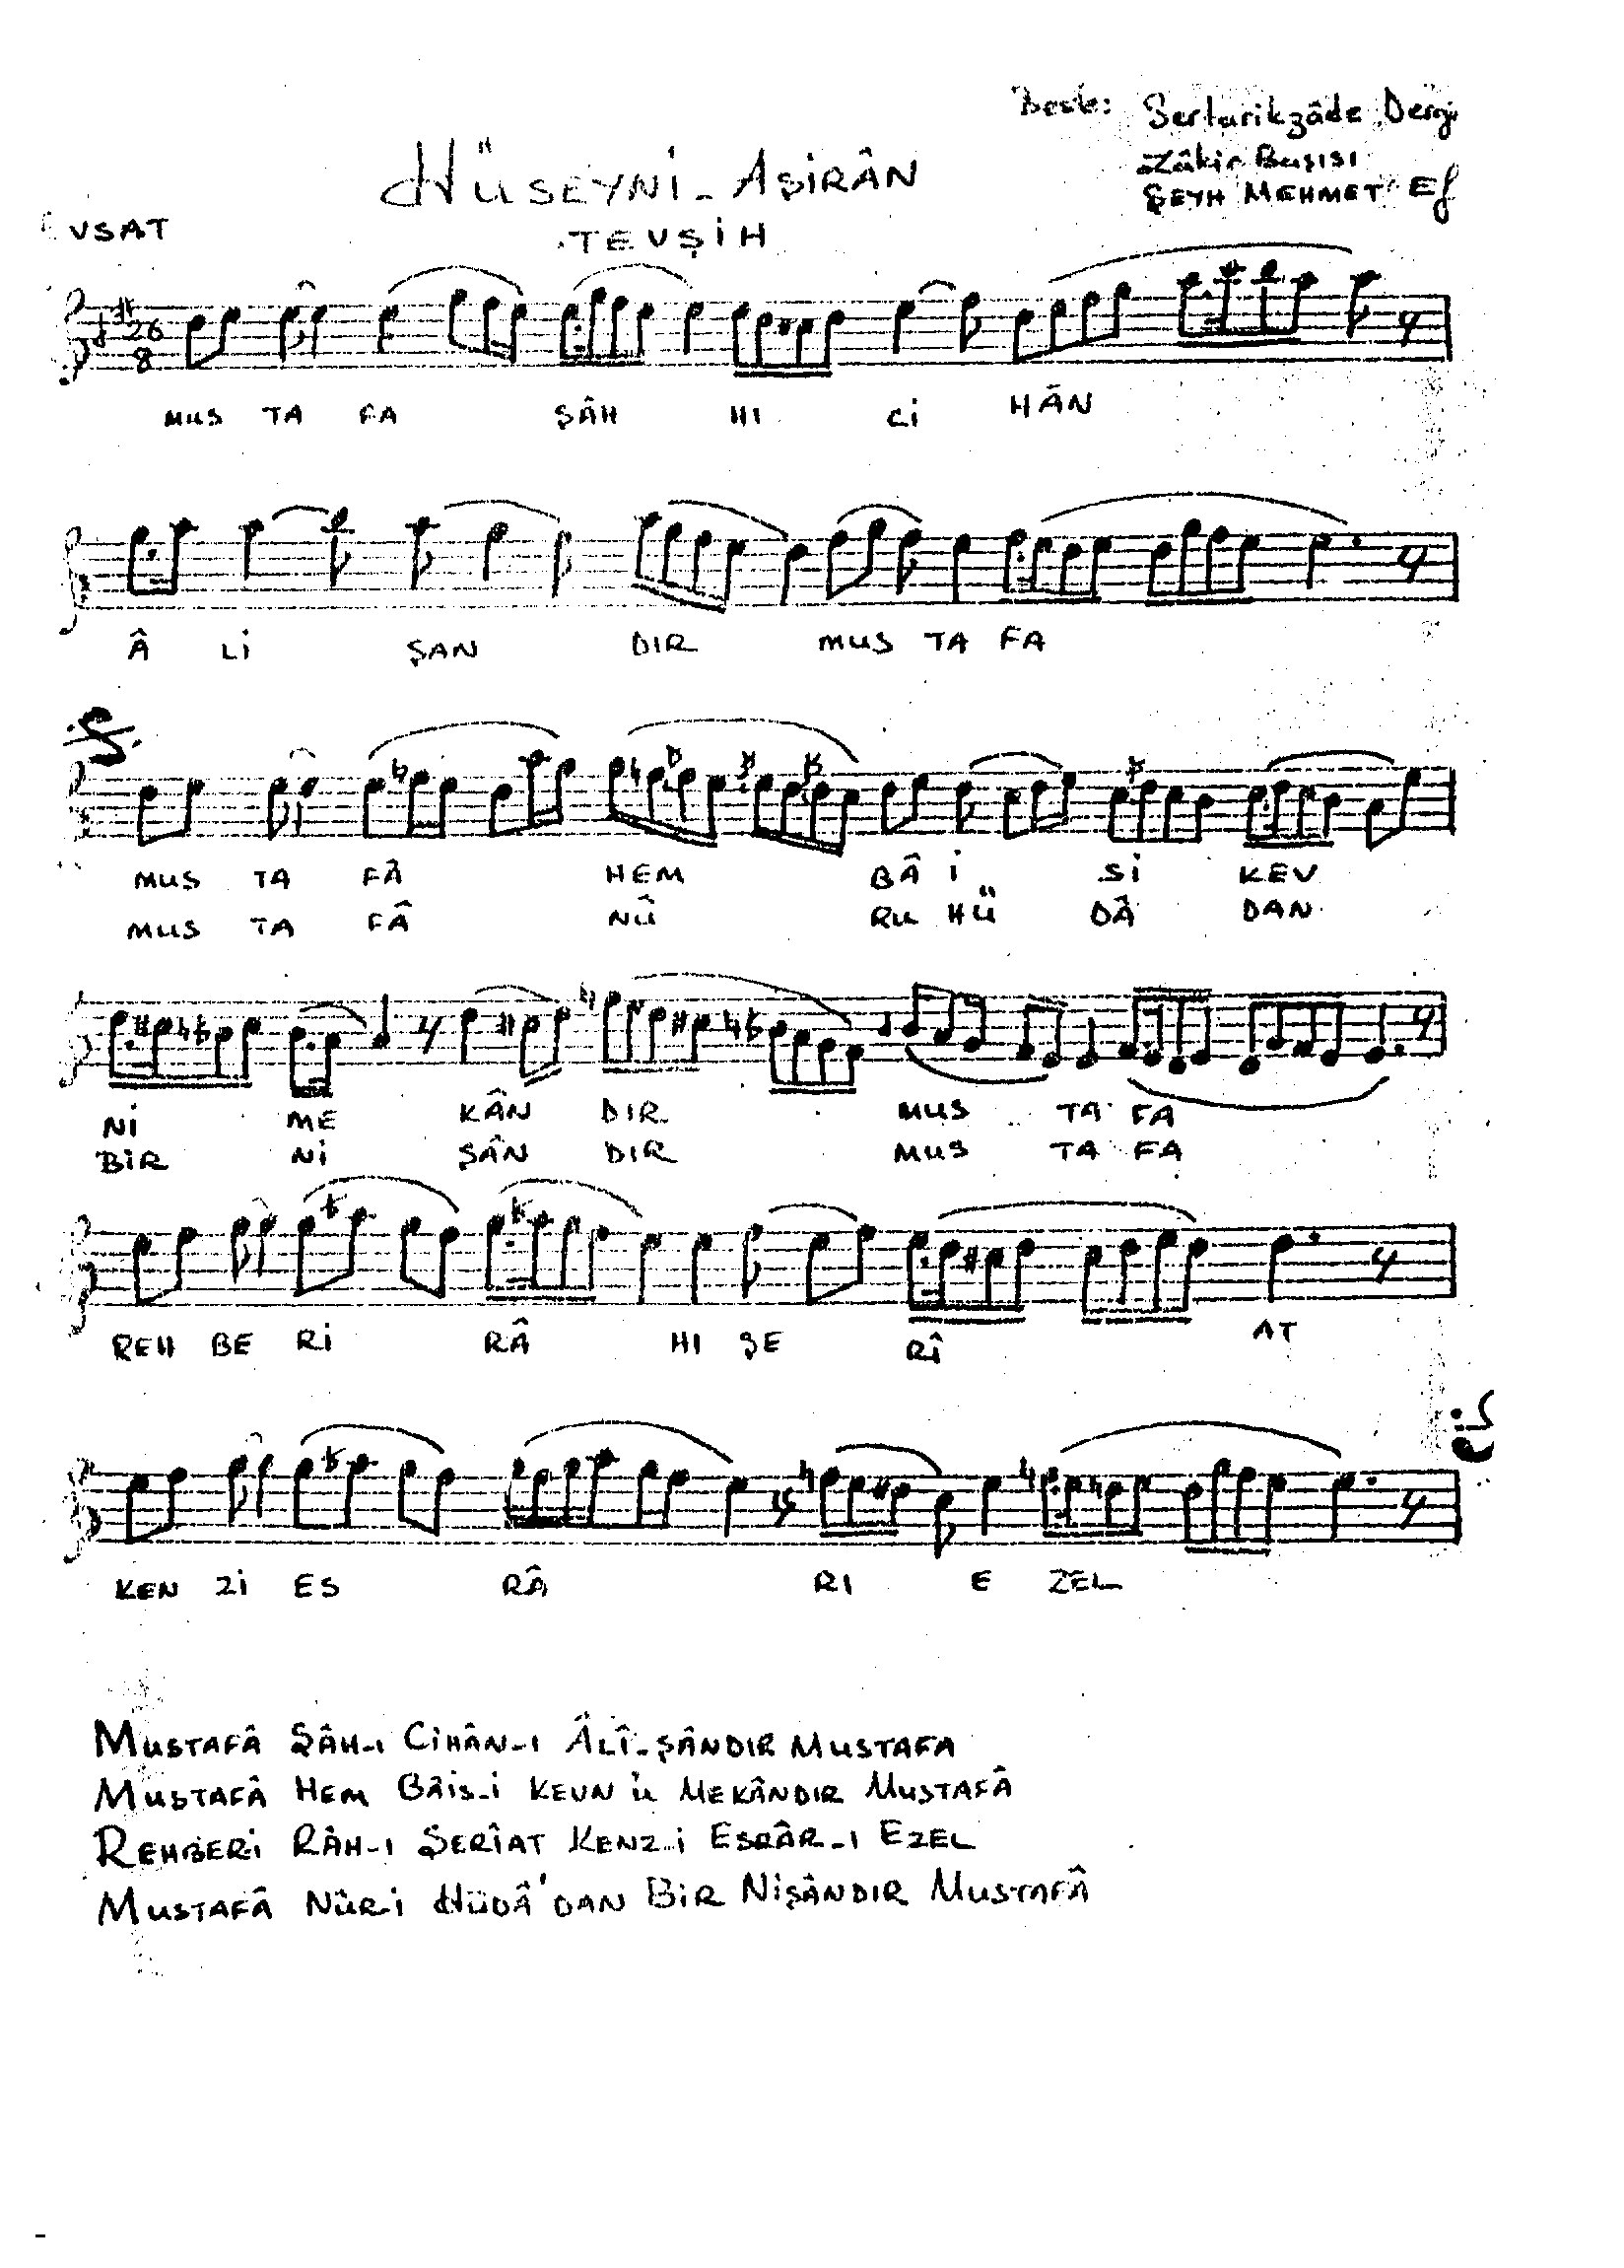 Beste: Sertarikzâde Derg
Zâkir Başısı
ŞEYH MEHMET Ef
HÜSEYNİ-AŞİRÂN
TEVŞİH
EVSAT
26
8
MUS TA FA ŞÂH HI Cİ HÂN
Â Lİ ŞAN DIR MUS TA FA
MUS TA FÂ HEM BÂ İ Sİ KEV
MUS TA FÂ NÛ RU HÜ DÂ DAN
Nİ ME KÂN DIR MUS TA FA
BİR Nİ ŞÂN DIR MUS TA FA
REH BE Rİ RÂ HI ŞE RÎ AT
KEN Zİ ES RÂ RI E ZEL
MUSTAFÂ ŞÂH-I CİHÂN-I ÂLÎ-ŞÂNDIR MUSTAFA
MUSTAFÂ HEM BÂİS-İ KEVN Ü MEKÂNDIR MUSTAFÂ
REHBER-İ RÂH-I ŞERÎAT KENZ-İ ESRÂR-I EZEL
MUSTAFÂ NÛR-İ HÜDÂ'DAN BİR NİŞÂNDIR MUSTAFÂ